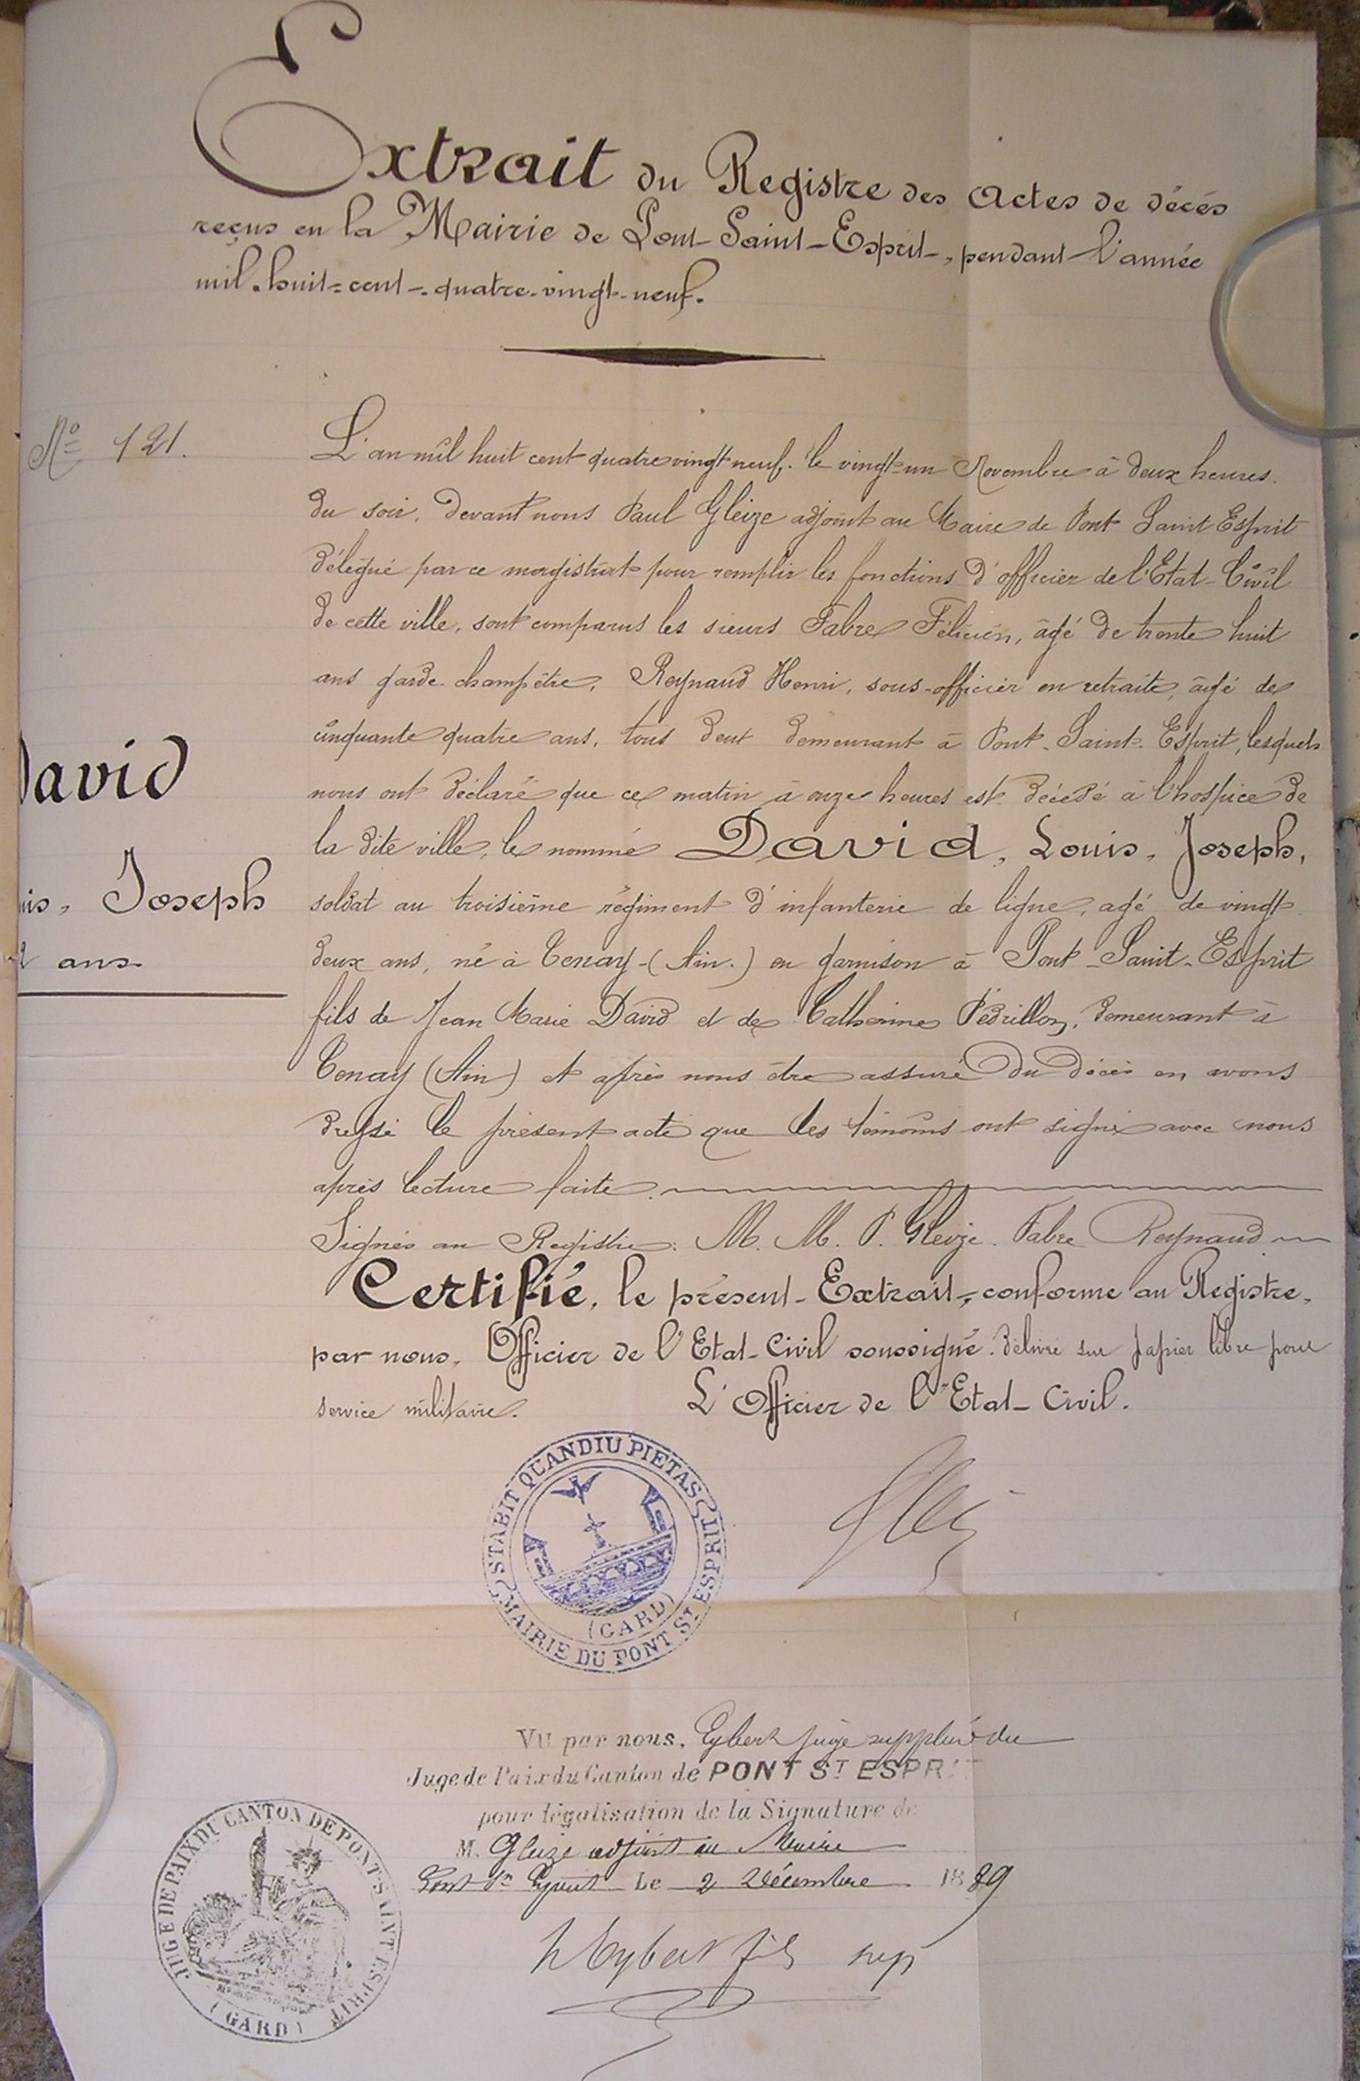 Extrait du Registre des Actes de décès
reçus en la Mairie de Pont-Saint-Esprit, pendant l'année
mil-huit-cent-quatre-vingt-neuf.
No 121.
David
is, Joseph
2 ans
L'an mil huit cent quatre vingt neuf. le vingt-un Novembre à deux heures
du soir, devant nous Paul Gleize adjoint au Maire de Pont Saint Esprit
délégué par ce magistrat pour remplir les fonctions d'officier de l'Etat-Civil
de cette ville, sont comparus les sieurs Fabre Félicien, âgé de trente huit
ans garde-champêtre, Reynaud Henri, sous-officier en retraite, âgé de
cinquante quatre ans, tous deux demeurant à Pont-Saint-Esprit, lesquels
nous ont déclaré que ce matin à onze heures est décédé à l'hospice de
la dite ville, le nommé David, Louis, Joseph,
soldat au troisième régiment d'infanterie de ligne, agé de vingt
deux ans, né à Tenay-(Ain.) en garnison à Pont-Saint-Esprit
fils de Jean Marie David et de Catherine Pédrillon, demeurant à
Tenay (Ain) et après nous être assuré du décès en avons
dressé le présent acte que les témoins ont signé avec nous
après lecture faite.
Signés au Registre: M. M. P. Gleize. Fabre Reynaud
Certifié, le présent Extrait, conforme au Registre,
par nous, Officier de l'Etat-Civil soussigné. délivré sur papier libre pour
service militaire.
L'Officier de l'Etat-Civil.
STABIT QUANDIU PIETAS
MAIRIE DU PONT ST ESPRIT
(GARD)
Gleize
Vu par nous, Eybert juge suppléant du
Juge de Paix du Canton de PONT ST ESPRIT
pour légalisation de la Signature de
M. Gleize adjoint au Maire
Pont St Esprit Le 2 Décembre 1889
JUGE DE PAIX DU CANTON DE PONT-SAINT-ESPRIT
(GARD)
Eybert fils